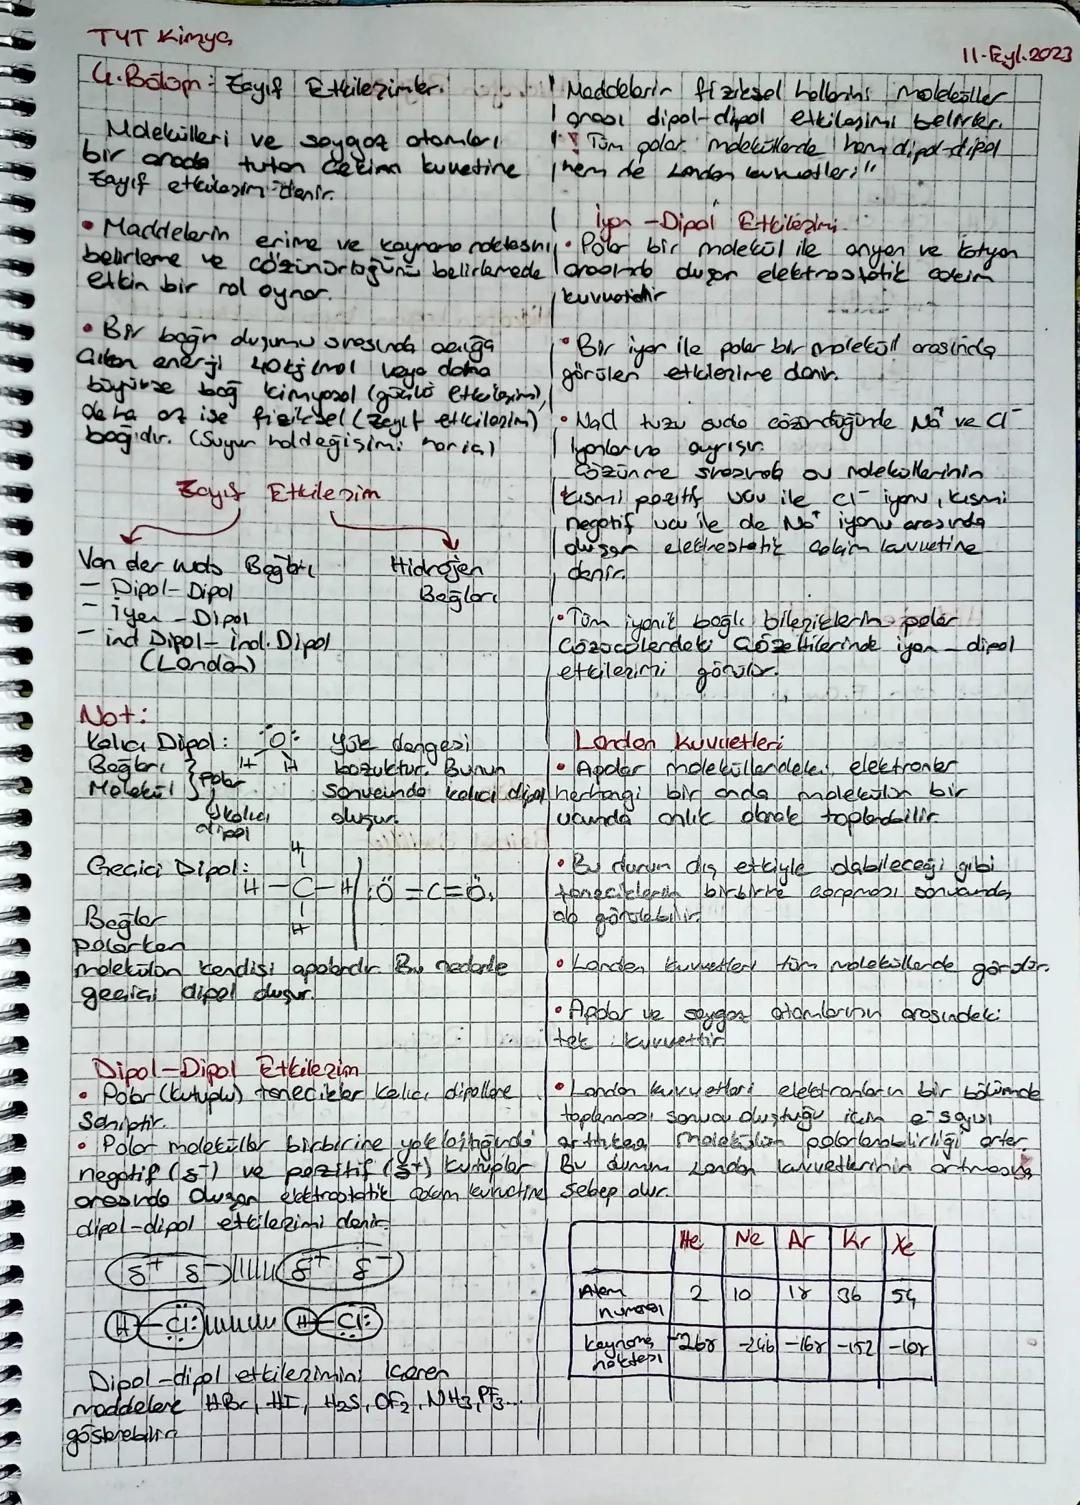 TYT Kimya
11.Eyl.2023
4.Bölüm: Zayıf Etkileşimler
Molekülleri ve soygaz atomları
bir arada tutan çekim kuvvetine
zayıf etkileşim denir.
• Maddelerin erime ve kaynama noktasını
belirleme ve çözünürlüğünü belirlemede
etkin bir rol oynar.
• Bir bağın oluşumu sırasında açığa
çıkan enerji 40 kj/mol veya daha
büyükse bağ kimyasal (güçlü etkileşim),
daha az ise fiziksel (zayıf etkileşim)
bağıdır. (Suyun hal değişimi hariç)
Zayıf Etkileşim
Van der wals Bağları
Hidrojen
Bağları
- Dipol-Dipol
- İyon - Dipol
- ind Dipol - ind. Dipol
(London)
Not:
Kalıcı Dipol:
Bağları
Molekül } Polar
↓
kalıcı
dipol
O
H H
Yük dengesi
bozuktur. Bunun
sonucunda kalıcı dipol
oluşur.
Geçici Dipol:
H
H - C - H / :Ö=C=Ö:
H
Bağlar
polarken
molekülün kendisi apolardır. Bu nedenle
geçici dipol oluşur.
Dipol-Dipol Etkileşim
• Polar (kutuplu) tanecikler kalıcı dipollere
sahiptir.
• Polar moleküller birbirine yaklaştığında
negatif (δ-) ve pozitif (δ+) kutuplar
arasında oluşan elektrostatik çekim kuvvetine
dipol-dipol etkileşimi denir.
δ+ δ- δ+ δ-
H Cl: H Cl:
Dipol-dipol etkileşimini içeren
maddelere HBr, HI, H2S, OF2, NH3, PF3...
gösterebiliriz
Maddelerin fiziksel hallerini moleküller
arası dipol-dipol etkileşimi belirler.
! Tüm polar moleküllerde hem dipol-dipol
hem de London kuvvetleri
İyon - Dipol Etkileşimi
• Polar bir molekül ile anyon ve katyon
arasında oluşan elektrostatik çekim
kuvvetidir
• Bir iyon ile polar bir molekül arasında
görülen etkileşime denir.
• NaCl tuzu suda çözündüğünde Na+ ve Cl-
iyonlarına ayrışır.
Çözünme sırasında su moleküllerinin
kısmi pozitif ucu ile Cl- iyonu, kısmi
negatif ucu ile de Na+ iyonu arasında
oluşan elektrostatik çekim kuvvetine
denir.
• Tüm iyonik bağlı bileşiklerin polar
çözücülerdeki çözeltilerinde iyon - dipol
etkileşimi görülür.
London Kuvvetleri
• Apolar moleküllerdeki elektronlar
herhangi bir anda molekülün bir
ucunda anlık olarak toplanabilir
• Bu durum dış etkiyle olabileceği gibi
taneciklerin birbirine çarpması sonucunda
da görülebilir.
• London kuvvetleri tüm moleküllerde görülür.
• Apolar ve soygaz atomlarının arasındaki
tek kuvvettir
• London kuvvetleri elektronların bir bölümde
toplanması sonucu oluştuğu için e- sayısı
arttıkça molekülün polarlanabilirliği artar.
Bu durum London kuvvetlerinin artmasına
sebep olur.
He Ne Ar Kr Xe
Atom
numarası 2 10 18 36 54
kaynama
noktası -268 -246 -168 -152 -108